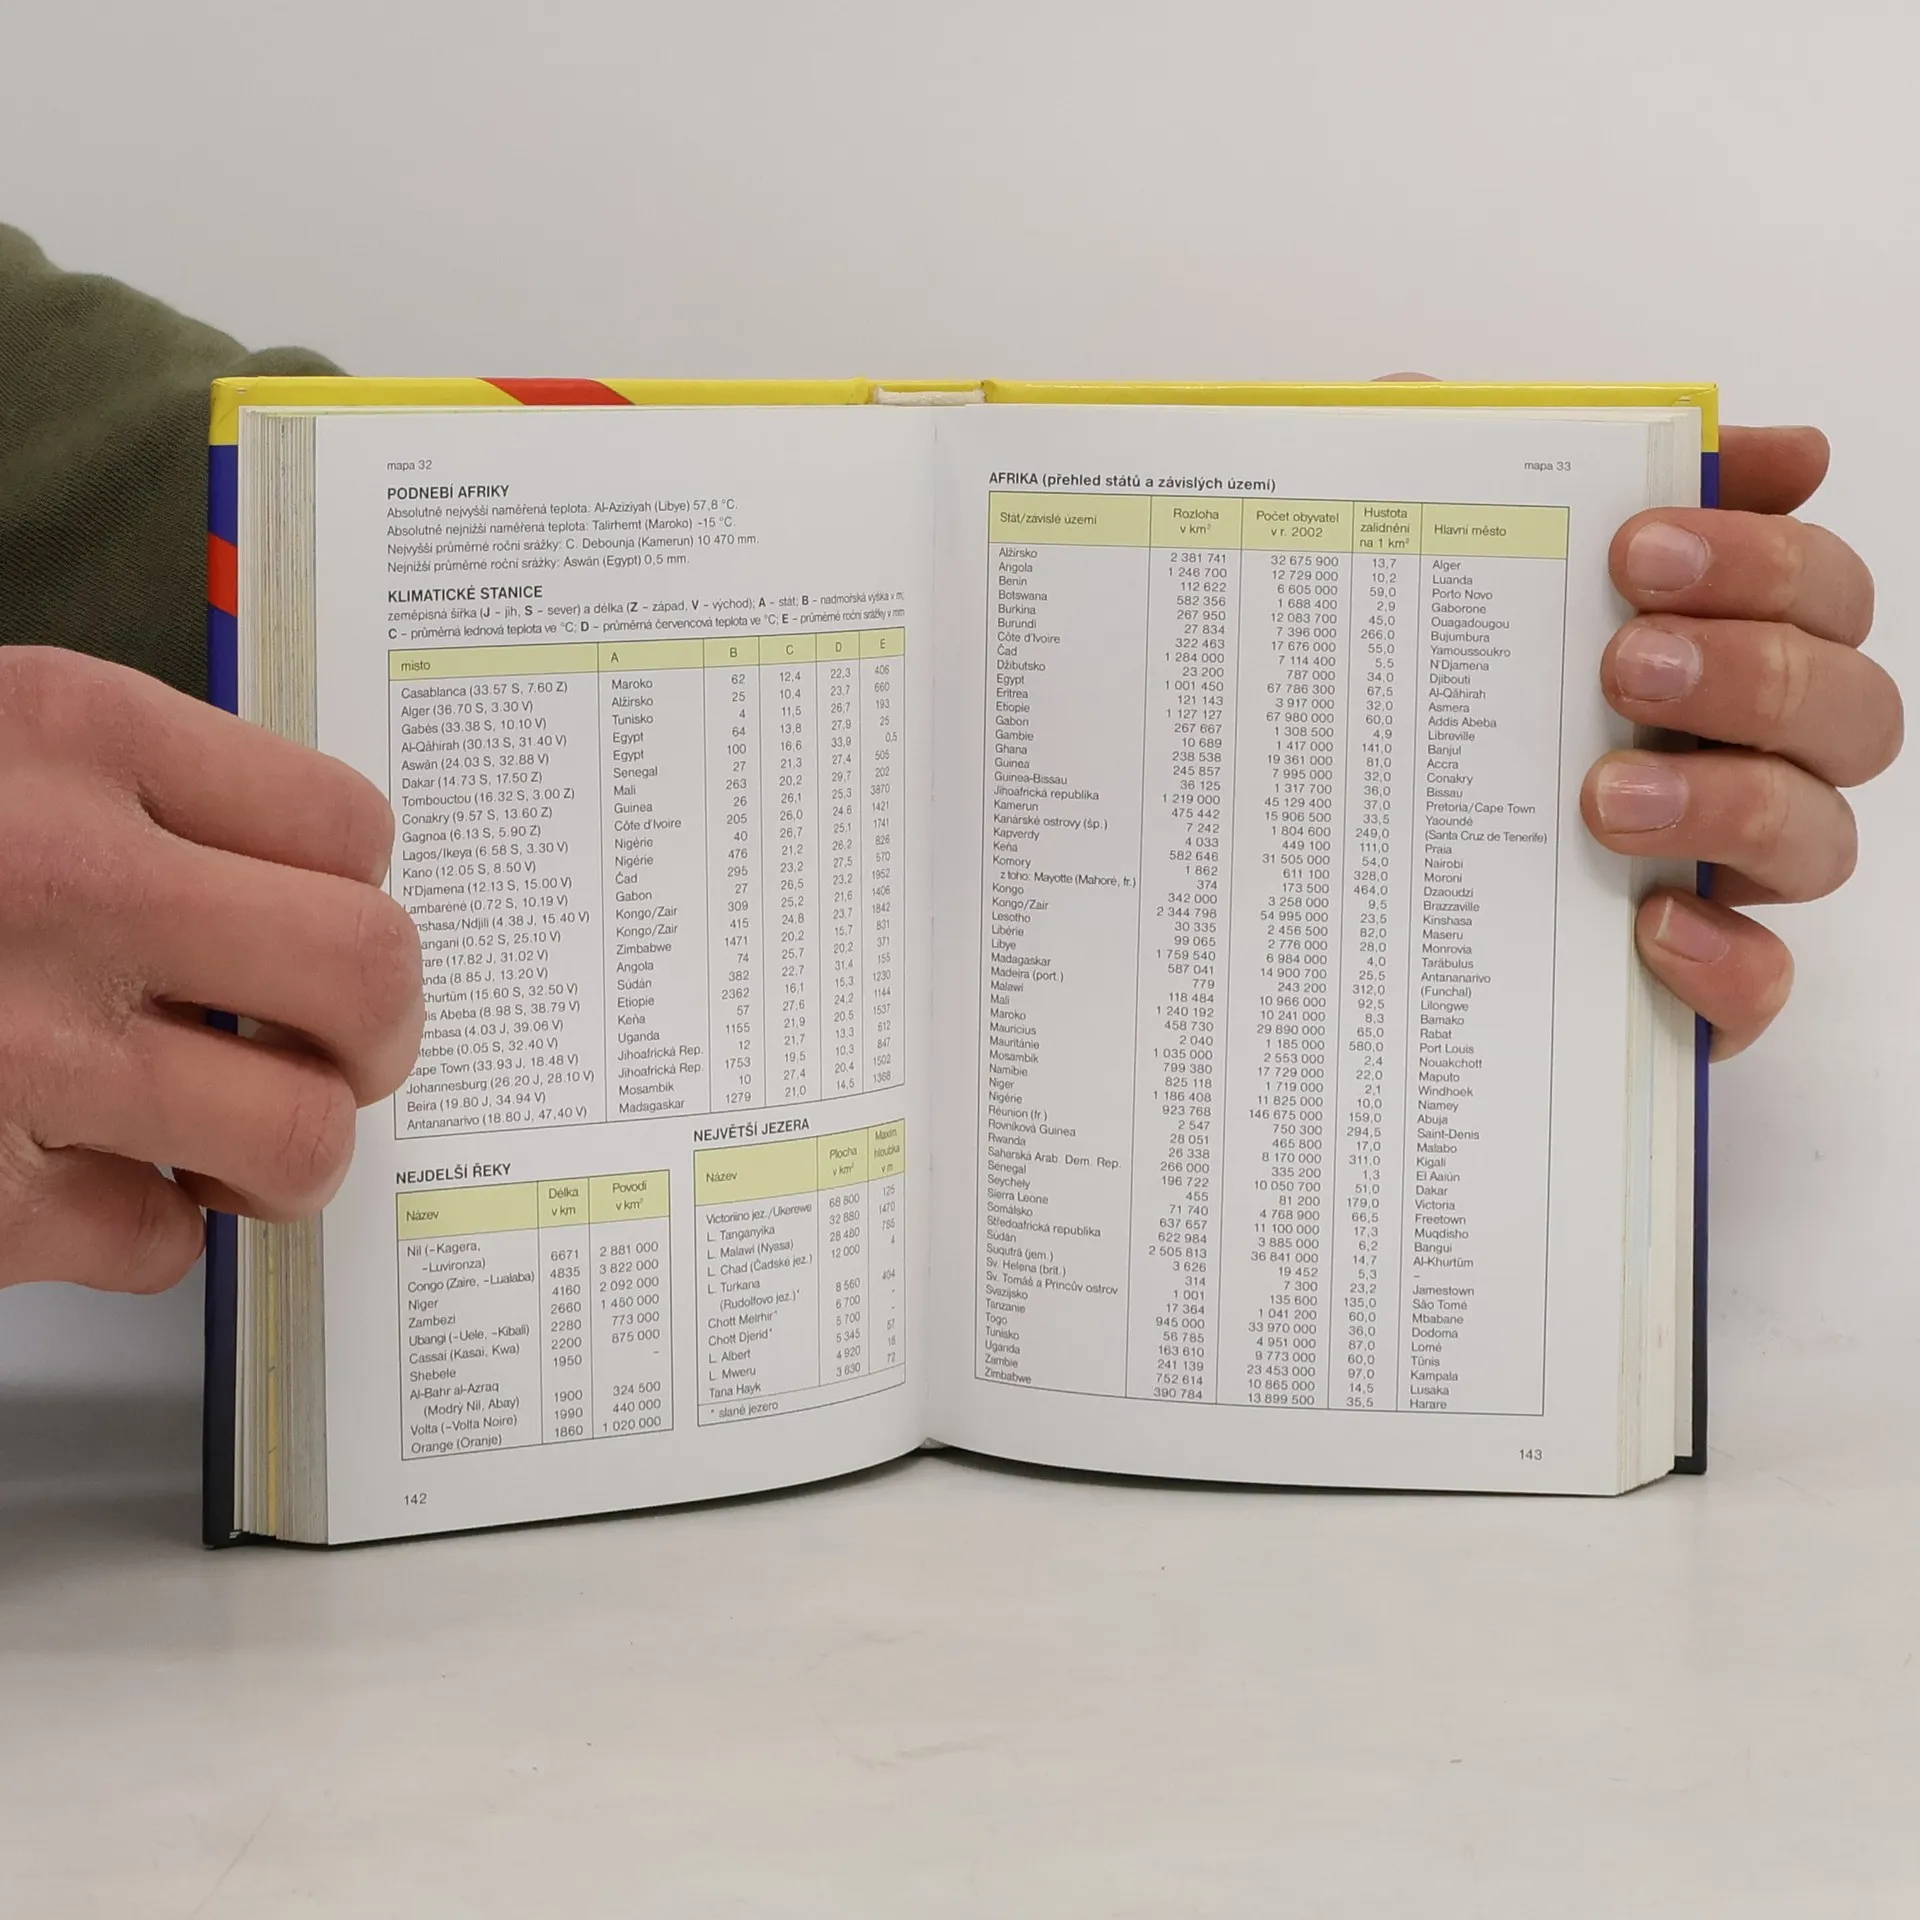 mapa 32
PODNEBÍ AFRIKY
Absolutně nejvyšší naměřená teplota: Al-Azízíyah (Libye) 57,8 °C.
Absolutně nejnižší naměřená teplota: Talirhemt (Maroko) -15 °C.
Nejvyšší průměrné roční srážky: C. Debounja (Kamerun) 10 470 mm.
Nejnižší průměrné roční srážky: Aswân (Egypt) 0,5 mm.
KLIMATICKÉ STANICE
zeměpisná šířka (J – jih, S – sever) a délka (Z – západ, V – východ); A – stát; B – nadmořská výška v m;
C – průměrná lednová teplota ve °C; D – průměrná červencová teplota ve °C; E – průměrné roční srážky v mm
místo A B C D E
Casablanca (33.57 S, 7.60 Z) Maroko 62 12,4 22,3 406
Alger (36.70 S, 3.30 V) Alžírsko 25 10,4 23,7 660
Gabés (33.38 S, 10.10 V) Tunisko 4 11,5 26,7 193
Al-Qâhirah (30.13 S, 31.40 V) Egypt 64 13,8 27,9 25
Aswân (24.03 S, 32.88 V) Egypt 100 16,6 33,9 0,5
Dakar (14.73 S, 17.50 Z) Senegal 27 21,3 27,4 505
Tombouctou (16.32 S, 3.00 Z) Mali 263 20,2 29,7 202
Conakry (9.57 S, 13.60 Z) Guinea 26 26,1 25,3 3870
Gagnoa (6.13 S, 5.90 Z) Côte d'Ivoire 205 26,0 24,6 1421
Lagos/Ikeya (6.58 S, 3.30 V) Nigérie 40 26,7 25,1 1741
Kano (12.05 S, 8.50 V) Nigérie 476 21,2 26,2 826
N'Djamena (12.13 S, 15.00 V) Čad 295 23,2 27,5 570
Lambaréné (0.72 S, 10.19 V) Gabon 27 26,5 23,2 1952
nshasa/Ndjili (4.38 J, 15.40 V) Kongo/Zair 309 25,2 21,6 1406
angani (0.52 S, 25.10 V) Kongo/Zair 415 24,8 23,7 1842
rare (17.82 J, 31.02 V) Zimbabwe 1471 20,2 15,7 831
nda (8.85 J, 13.20 V) Angola 74 25,7 20,2 371
Khurtûm (15.60 S, 32.50 V) Súdán 382 22,7 31,4 155
is Abeba (8.98 S, 38.79 V) Etiopie 2362 16,1 15,3 1230
mbasa (4.03 J, 39.06 V) Keňa 57 27,6 24,2 1144
tebbe (0.05 S, 32.40 V) Uganda 1155 21,9 20,5 1537
Cape Town (33.93 J, 18.48 V) Jihoafrická Rep. 12 21,7 13,3 612
Johannesburg (26.20 J, 28.10 V) Jihoafrická Rep. 1753 19,5 10,3 847
Beira (19.80 J, 34.94 V) Mosambik 10 27,4 20,4 1502
Antananarivo (18.80 J, 47,40 V) Madagaskar 1279 21,0 14,5 1368
NEJDELŠÍ ŘEKY
Název Délka v km Povodí v km²
Nil (–Kagera,
–Luvironza) 6671 2 881 000
Congo (Zaïre, –Lualaba) 4835 3 822 000
Niger 4160 2 092 000
Zambezi 2660 1 450 000
Ubangi (–Uele, –Kibali) 2280 773 000
Cassai (Kasai, Kwa) 2200 875 000
Shebele 1950 –
Al-Bahr al-Azraq
(Modrý Nil, Abay) 1900 324 500
Volta (–Volta Noire) 1990 440 000
Orange (Oranje) 1860 1 020 000
NEJVĚTŠÍ JEZERA
Název Plocha v km² Maxim. hloubka v m
Victoriino jez./Ukerewe 68 800 125
L. Tanganyika 32 880 1470
L. Malawi (Nyasa) 28 480 785
L. Chad (Čadské jez.) 12 000 4
L. Turkana
(Rudolfovo jez.)* 8 560 404
Chott Melrhir* 6 700 -
Chott Djerid* 5 700 -
L. Albert 5 345 57
L. Mweru 4 920 18
Tana Hayk 3 630 72
* slané jezero
142
mapa 33
AFRIKA (přehled států a závislých území)
Stát/závislé území Rozloha v km² Počet obyvatel v r. 2002 Hustota zalidnění na 1 km² Hlavní město
Alžírsko 2 381 741 32 675 900 13,7 Alger
Angola 1 246 700 12 729 000 10,2 Luanda
Benin 112 622 6 605 000 59,0 Porto Novo
Botswana 582 356 1 688 400 2,9 Gaborone
Burkina 267 950 12 083 700 45,0 Ouagadougou
Burundi 27 834 7 396 000 266,0 Bujumbura
Côte d'Ivoire 322 463 17 676 000 55,0 Yamoussoukro
Čad 1 284 000 7 114 400 5,5 N'Djamena
Džibutsko 23 200 787 000 34,0 Djibouti
Egypt 1 001 450 67 786 300 67,5 Al-Qâhirah
Eritrea 121 143 3 917 000 32,0 Asmera
Etiopie 1 127 127 67 980 000 60,0 Addis Abeba
Gabon 267 667 1 308 500 4,9 Libreville
Gambie 10 689 1 417 000 141,0 Banjul
Ghana 238 538 19 361 000 81,0 Accra
Guinea 245 857 7 995 000 32,0 Conakry
Guinea-Bissau 36 125 1 317 700 36,0 Bissau
Jihoafrická republika 1 219 000 45 129 400 37,0 Pretoria/Cape Town
Kamerun 475 442 15 906 500 33,5 Yaoundé
Kanárské ostrovy (šp.) 7 242 1 804 600 249,0 (Santa Cruz de Tenerife)
Kapverdy 4 033 449 100 111,0 Praia
Keňa 582 646 31 505 000 54,0 Nairobi
Komory 1 862 611 100 328,0 Moroni
z toho: Mayotte (Mahoré, fr.) 374 173 500 464,0 Dzaoudzi
Kongo 342 000 3 258 000 9,5 Brazzaville
Kongo/Zair 2 344 798 54 995 000 23,5 Kinshasa
Lesotho 30 335 2 456 500 82,0 Maseru
Libérie 99 065 2 776 000 28,0 Monrovia
Libye 1 759 540 6 984 000 4,0 Tarábulus
Madagaskar 587 041 14 900 700 25,5 Antananarivo
Madeira (port.) 779 243 200 312,0 (Funchal)
Malawi 118 484 10 966 000 92,5 Lilongwe
Mali 1 240 192 10 241 000 8,3 Bamako
Maroko 458 730 29 890 000 65,0 Rabat
Mauricius 2 040 1 185 000 580,0 Port Louis
Mauritánie 1 035 000 2 553 000 2,4 Nouakchott
Mosambik 799 380 17 729 000 22,0 Maputo
Namibie 825 118 1 719 000 2,1 Windhoek
Niger 1 186 408 11 825 000 10,0 Niamey
Nigérie 923 768 146 675 000 159,0 Abuja
Réunion (fr.) 2 547 750 300 294,5 Saint-Denis
Rovníková Guinea 28 051 465 800 17,0 Malabo
Rwanda 26 338 8 170 000 311,0 Kigali
Saharská Arab. Dem. Rep. 266 000 335 200 1,3 El Aaiún
Senegal 196 722 10 050 700 51,0 Dakar
Seychely 455 81 200 179,0 Victoria
Sierra Leone 71 740 4 768 900 66,5 Freetown
Somálsko 637 657 11 100 000 17,3 Muqdisho
Středoafrická republika 622 984 3 885 000 6,2 Bangui
Súdán 2 505 813 36 841 000 14,7 Al-Khurtûm
Suqutrá (jem.) 3 626 19 452 5,3 –
Sv. Helena (brit.) 314 7 300 23,2 Jamestown
Sv. Tomáš a Princův ostrov 1 001 135 600 135,0 São Tomé
Svazijsko 17 364 1 041 200 60,0 Mbabane
Tanzanie 945 000 33 970 000 36,0 Dodoma
Togo 56 785 4 951 000 87,0 Lomé
Tunisko 163 610 9 773 000 60,0 Tûnis
Uganda 241 139 23 453 000 97,0 Kampala
Zambie 752 614 10 865 000 14,5 Lusaka
Zimbabwe 390 784 13 899 500 35,5 Harare
143